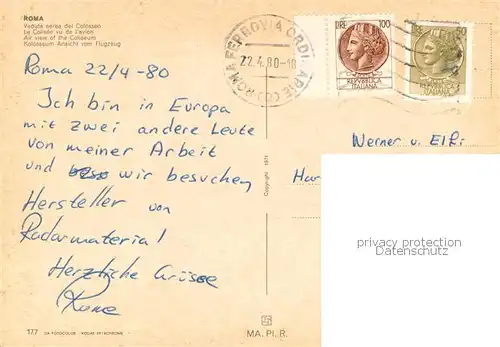 ROMA
Veduta aerea del Colosseo
Le Colisée vu de l'avion
Air view of the Coliseum
Kolosseum Ansicht vom Flugzeug
ROMA FERROVIA ORDI
22.4.80-18
LIRE 100
REPVBBLICA
ITALIANA
REPVBBLICA
ITALIANA
Roma 22/4-80
Ich bin in Europa
mit zwei andere Leute
von meiner Arbeit
und wir besuchen
Hersteller von
Radarmaterial
Herzliche Grüsse
Werner u. Elfi
Har
Copyright 1973
privacy protection
Datenschutz
177
MA. PI. R.